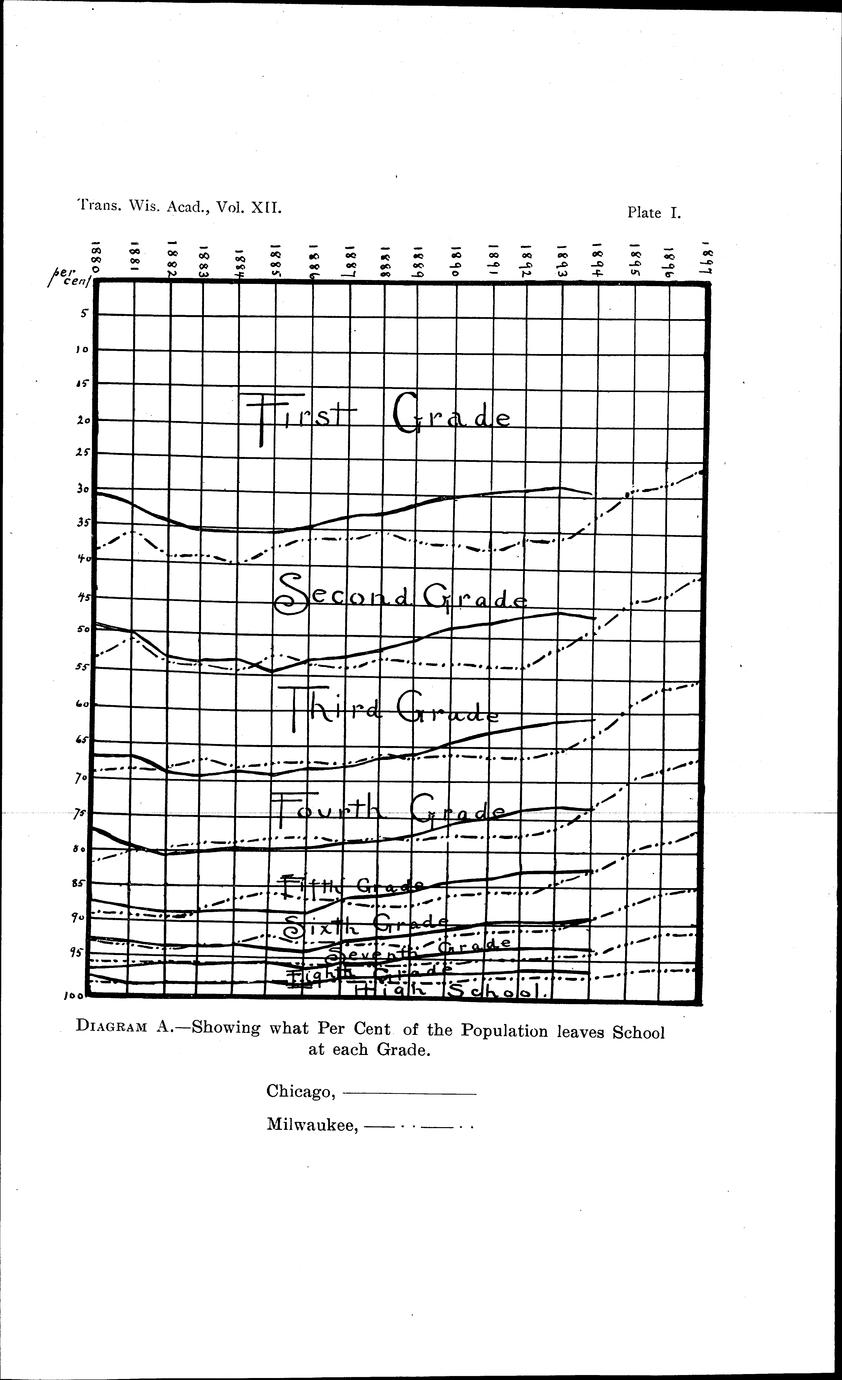 Trans. Wis. Acad., Vol. XII.
Plate I.
1880 1881 1882 1883 1884 1885 1886 1887 1888 1889 1890 1891 1892 1893 1894 1895 1896 1897
per cent
5
10
15
20
25
30
35
40
45
50
55
60
65
70
75
80
85
90
95
100
First Grade
Second Grade
Third Grade
Fourth Grade
Fifth Grade
Sixth Grade
Seventh Grade
Eighth Grade
High School.
DIAGRAM A.—Showing what Per Cent of the Population leaves School
at each Grade.
Chicago,
Milwaukee,